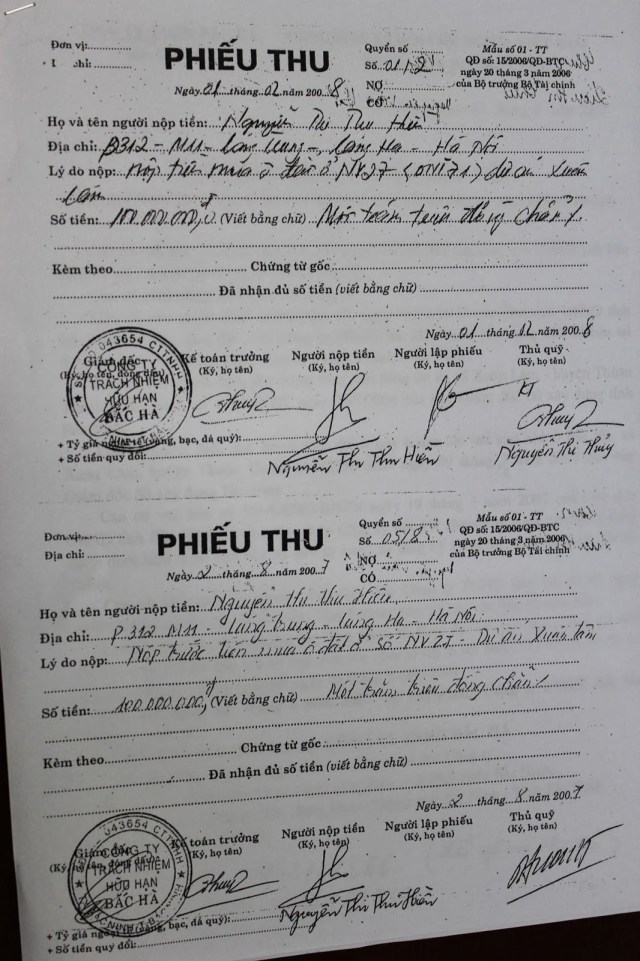 Đơn vị:
PHIẾU THU
Quyển số
Mẫu số 01 - TT
chỉ:
Số 01/2
QĐ số: 15/2006/QĐ-BTC
ngày 20 tháng 3 năm 2006
của Bộ trưởng Bộ Tài chính
Ngày 01 tháng 02 năm 2008
NỢ
CÓ
Họ và tên người nộp tiền: Nguyễn Thị Thu Hiền
Địa chỉ: P312 - M11 - Láng Trung - Láng Hạ - Hà Nội
Lý do nộp: Nộp tiền mua ô đất ở NV27 dự án Xuân
Lâm
Số tiền: 100.000.000,đ (Viết bằng chữ) Một trăm triệu đồng chẵn
Kèm theo Chứng từ gốc
Đã nhận đủ số tiền (viết bằng chữ)
Ngày 01 tháng 02 năm 2008
Giám đốc Kế toán trưởng Người nộp tiền Người lập phiếu Thủ quỹ
(Ký, họ tên, đóng dấu) (Ký, họ tên) (Ký, họ tên) (Ký, họ tên) (Ký, họ tên)
043654 CTTNHH
CÔNG TY
TRÁCH NHIỆM
HỮU HẠN
BẮC HÀ
KT
+ Tỷ giá ngoại tệ (vàng, bạc, đá quý):
+ Số tiền quy đổi:
Nguyễn Thị Thu Hiền
Nguyễn Thị Thủy
Đơn vị:
PHIẾU THU
Quyển số
Mẫu số 01 - TT
Địa chỉ:
Số 05/8
QĐ số: 15/2006/QĐ-BTC
ngày 20 tháng 3 năm 2006
của Bộ trưởng Bộ Tài chính
Ngày 2 tháng 8 năm 2007
NỢ
CÓ
Họ và tên người nộp tiền: Nguyễn Thị Thu Hiền
Địa chỉ: P.312 M11 - Láng Trung - Láng Hạ - Hà Nội
Lý do nộp: Nộp trước tiền mua ô đất ở số NV27 - Dự án Xuân Lâm
Số tiền: 100.000.000,đ (Viết bằng chữ) Một trăm triệu đồng chẵn
Kèm theo Chứng từ gốc
Đã nhận đủ số tiền (viết bằng chữ)
Ngày 2 tháng 8 năm 2007
Giám đốc Kế toán trưởng Người nộp tiền Người lập phiếu Thủ quỹ
(Ký, họ tên, đóng dấu) (Ký, họ tên) (Ký, họ tên) (Ký, họ tên) (Ký, họ tên)
043654 CTTNHH
CÔNG TY
TRÁCH NHIỆM
HỮU HẠN
BẮC HÀ
Nguyễn Thị Thu Hiền
+ Tỷ giá ngoại tệ (vàng, bạc, đá quý):
+ Số tiền quy đổi: